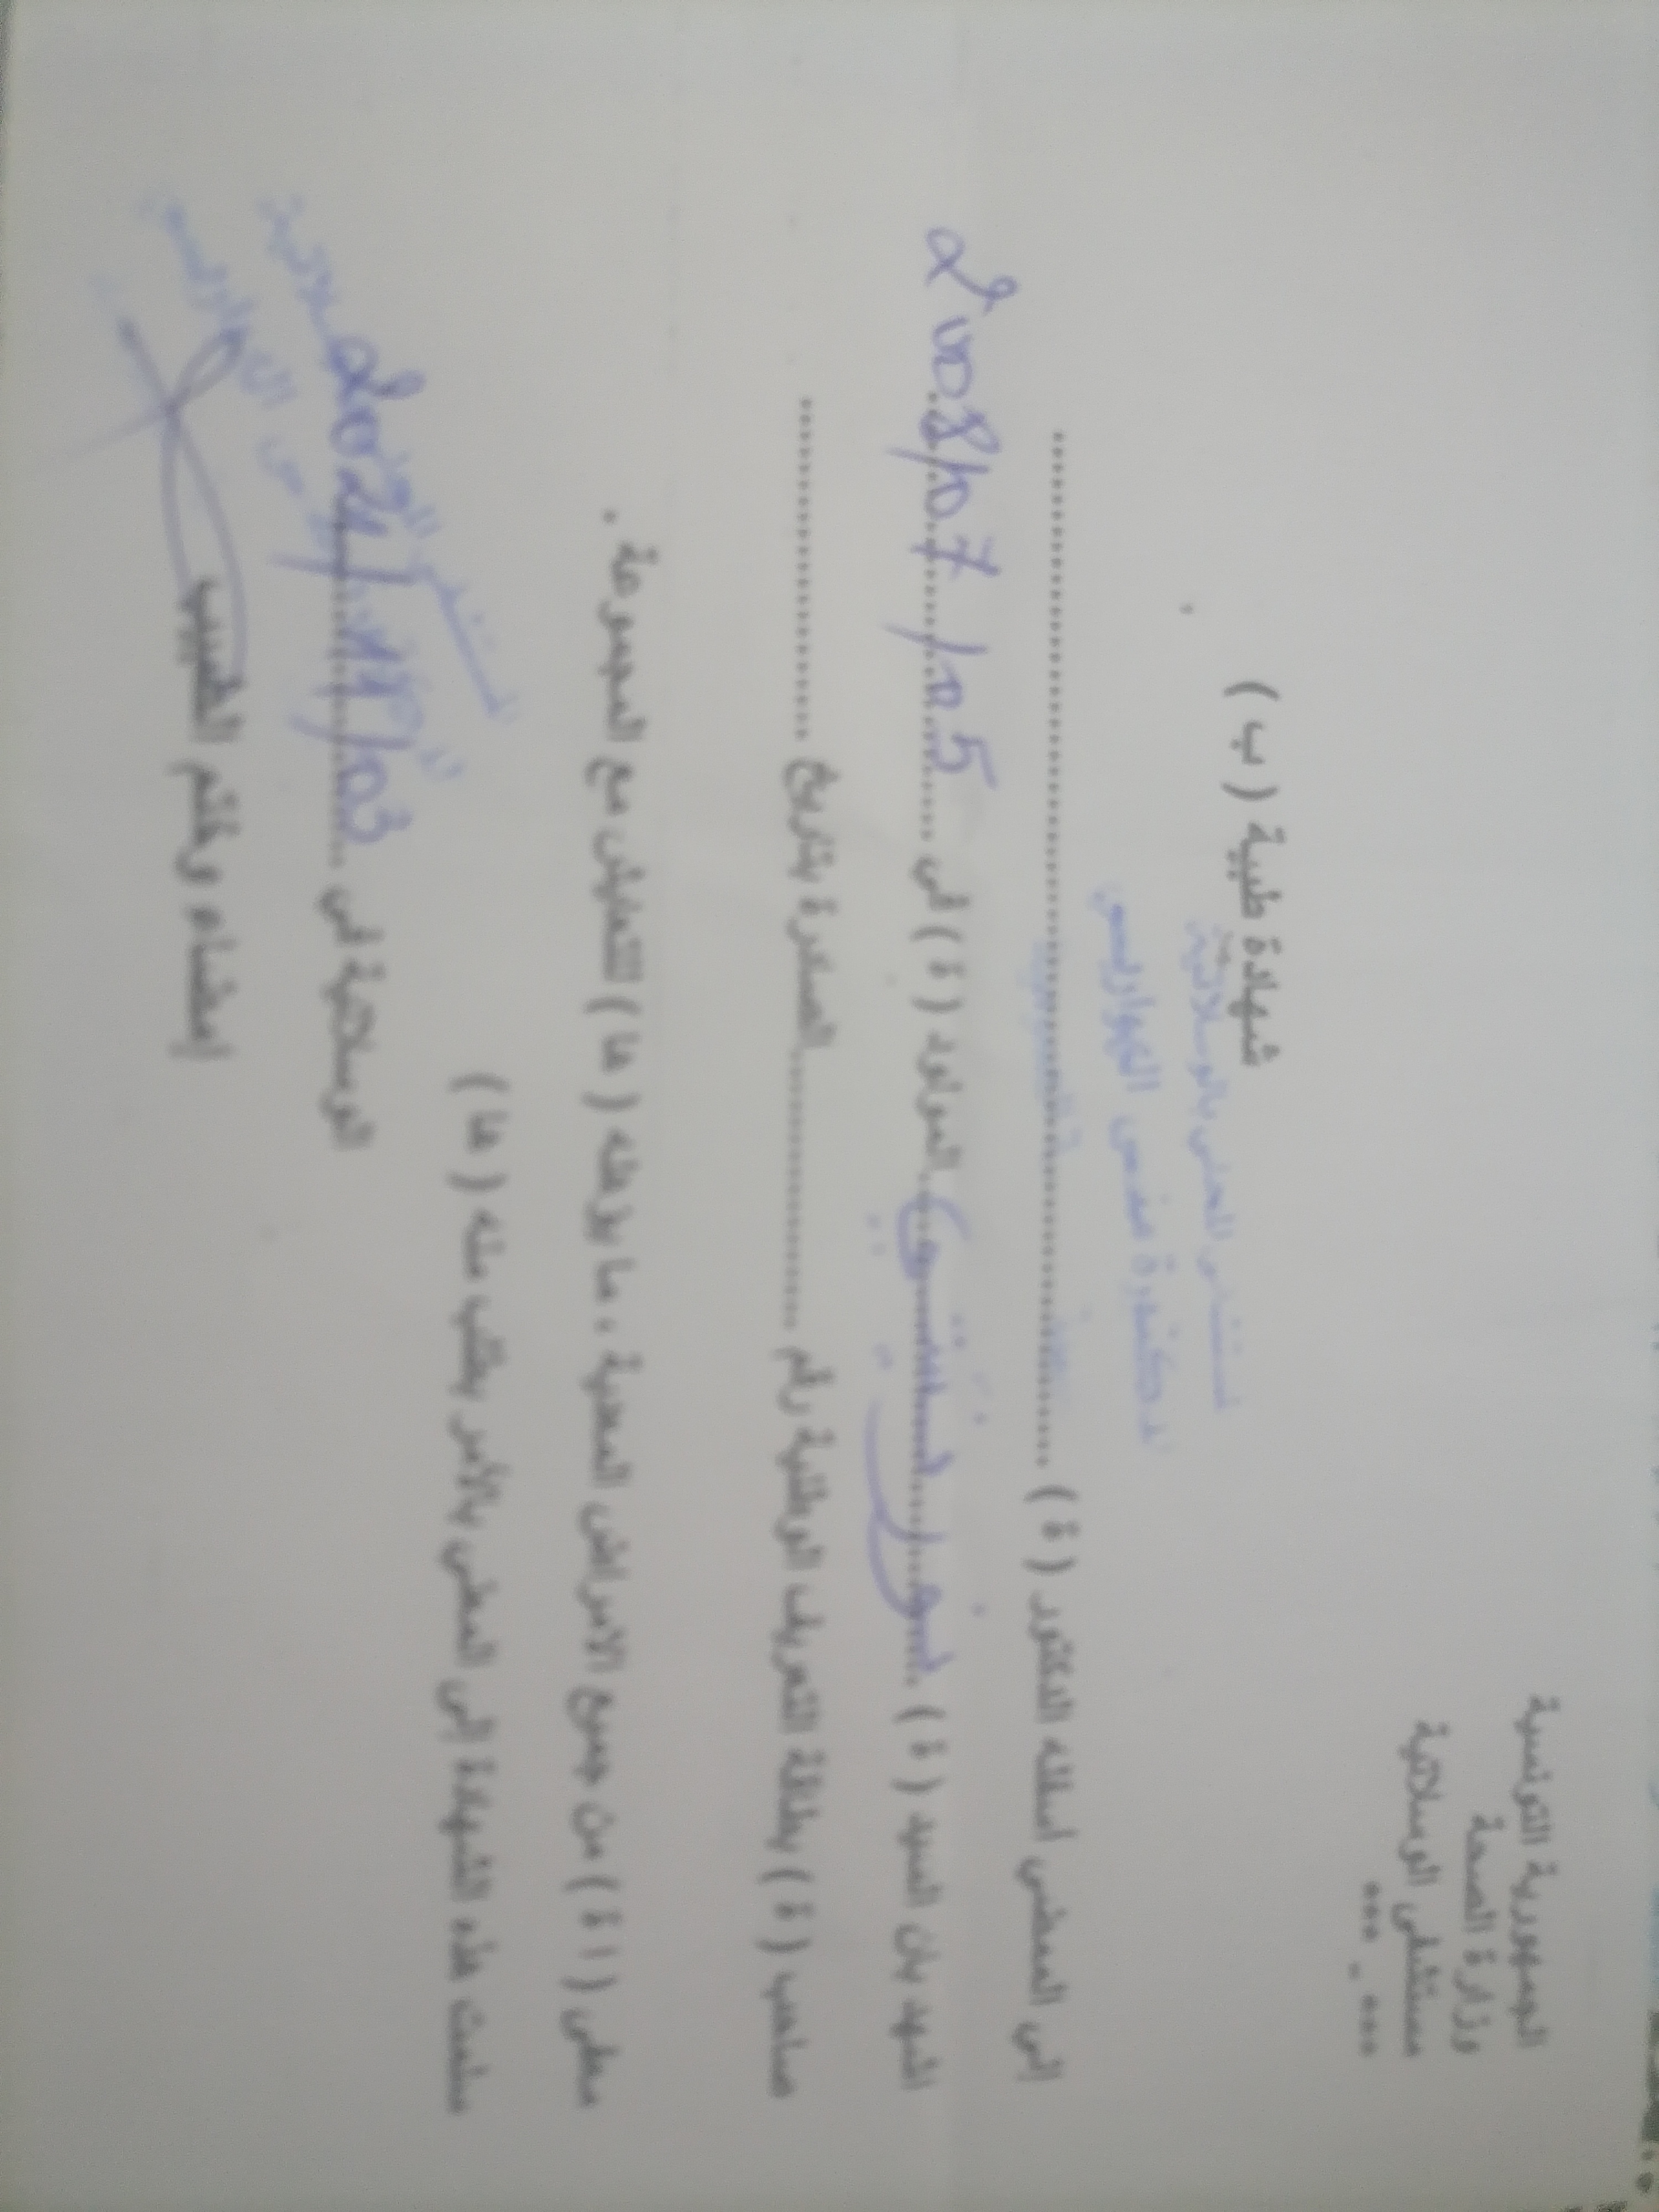 الجمهورية التونسية
وزارة الصحة
مستشفى الوسلاتية
*** - ***
شهادة طبية ( ب )
المستشفى المحلي بالوسلاتية
الدكتورة ميس الهوارسي
إني الممضي أسفله الدكتور ( ة ) ........................
أشهد بأن السيد ( ة ) نور المولود ( ة ) في 2008/07/05
صاحب ( ة ) بطاقة التعريف الوطنية رقم .................. الصادرة بتاريخ ..................
معفى ( ا ة ) من جميع الأمراض المعدية ، ما يؤهله ( ها ) للتعايش مع المجموعة .
سلمت هذه الشهادة إلى المعني بالأمر بطلب منه ( ها )
الوسلاتية في 2024/11/03
إمضاء وختم الطبيب